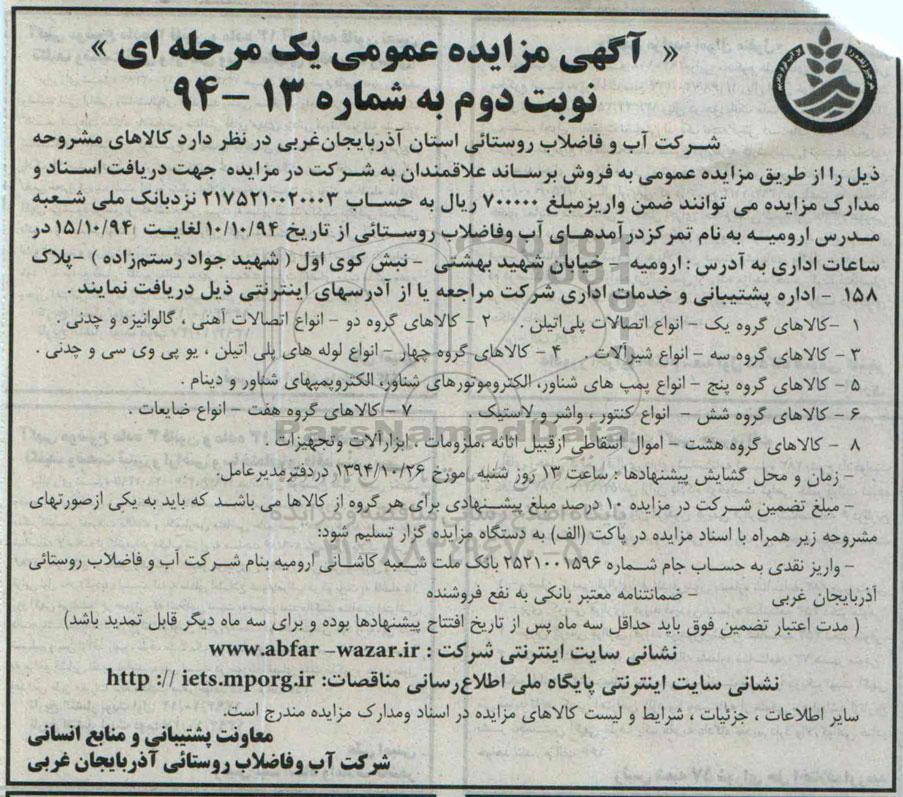 « آگهی مزایده عمومی یک مرحله ای »
نوبت دوم به شماره ۱۳ – ۹۴
شرکت آب و فاضلاب روستائی استان آذربایجان‌غربی در نظر دارد کالاهای مشروحه
ذیل را از طریق مزایده عمومی به فروش برساند علاقمندان به شرکت در مزایده جهت دریافت اسناد و
مدارک مزایده می توانند ضمن واریزمبلغ ۷۰۰۰۰۰ ریال به حساب ۲۱۷۵۲۱۰۰۲۰۰۰۳ نزدبانک ملی شعبه
مدرس ارومیه به نام تمرکزدرآمدهای آب وفاضلاب روستائی از تاریخ ۱۰/۱۰/۹۴ لغایت ۱۵/۱۰/۹۴ در
ساعات اداری به آدرس : ارومیه – خیابان شهید بهشتی – نبش کوی اول ( شهید جواد رستم‌زاده ) –پلاک
۱۵۸ – اداره پشتیبانی و خدمات اداری شرکت مراجعه یا از آدرسهای اینترنتی ذیل دریافت نمایند .
۱ –کالاهای گروه یک – انواع اتصالات پلی‌اتیلن . ۲ – کالاهای گروه دو – انواع اتصالات آهنی ، گالوانیزه و چدنی .
۳ – کالاهای گروه سه – انواع شیرآلات . ۴ – کالاهای گروه چهار – انواع لوله های پلی اتیلن ، یو پی وی سی و چدنی .
۵ – کالاهای گروه پنج – انواع پمپ های شناور، الکتروموتورهای شناور، الکتروپمپهای شناور و دینام .
۶ – کالاهای گروه شش – انواع کنتور ، واشر و لاستیک . ۷ – کالاهای گروه هفت – انواع ضایعات .
۸ – کالاهای گروه هشت – اموال اسقاطی ازقبیل اثاثه ،ملزومات ، ابزارآلات وتجهیزات .
– زمان و محل گشایش پیشنهادها : ساعت ۱۳ روز شنبه مورخ ۱۳۹۴/۱۰/۲۶ دردفتر مدیرعامل .
– مبلغ تضمین شرکت در مزایده ۱۰ درصد مبلغ پیشنهادی برای هر گروه از کالاها می باشد که باید به یکی ازصورتهای
مشروحه زیر همراه با اسناد مزایده در پاکت (الف) به دستگاه مزایده گزار تسلیم شود:
– واریز نقدی به حساب جام شماره ۲۵۲۱۰۰۱۵۹۶ بانک ملت شعبه کاشانی ارومیه بنام شرکت آب و فاضلاب روستائی
آذربایجان غربی – ضمانتنامه معتبر بانکی به نفع فروشنده
( مدت اعتبار تضمین فوق باید حداقل سه ماه پس از تاریخ افتتاح پیشنهادها بوده و برای سه ماه دیگر قابل تمدید باشد)
نشانی سایت اینترنتی شرکت : www.abfar –wazar.ir
نشانی سایت اینترنتی پایگاه ملی اطلاع‌رسانی مناقصات: http :// iets.mporg.ir
سایر اطلاعات ، جزئیات ، شرایط و لیست کالاهای مزایده در اسناد ومدارک مزایده مندرج است.
معاونت پشتیبانی و منابع انسانی
شرکت آب وفاضلاب روستائی آذربایجان غربی
ParsNamadData